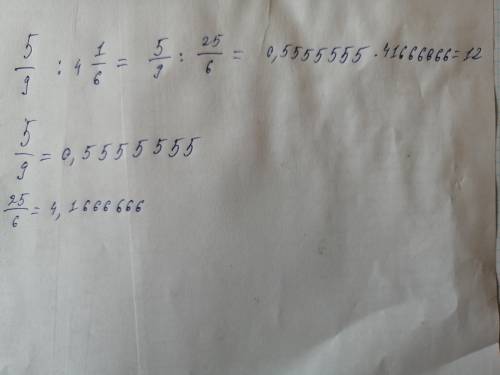 5/9 : 4 1/6 = 5/9 : 25/6 = 0,5555555 · 41666666 = 12
5/9 = 0,5555555
25/6 = 4,1666666